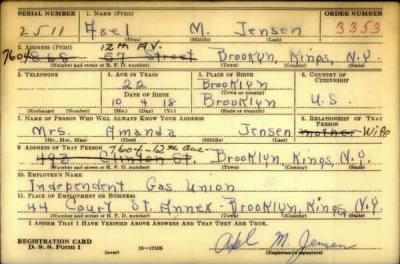 SERIAL NUMBER 1. NAME (Print) ORDER NUMBER
2511 Axel M. Jensen 3353
(First) (Middle) (Last)
2. ADDRESS (Print) 12th AV.
7604 868 57 Street Brooklyn, Kings, N.Y.
(Number and street or R. F. D. number) (Town) (County) (State)
3. TELEPHONE 4. AGE IN YEARS 5. PLACE OF BIRTH 6. COUNTRY OF CITIZENSHIP
22 Brooklyn
DATE OF BIRTH (Town or county)
10 4 18 Brooklyn U.S.
(Exchange) (Number) (Mo.) (Day) (Yr.) (State or country)
7. NAME OF PERSON WHO WILL ALWAYS KNOW YOUR ADDRESS 8. RELATIONSHIP OF THAT PERSON
Mrs. Amanda Jensen mother Wife
(Mr., Mrs., Miss) (First) (Middle) (Last)
9. ADDRESS OF THAT PERSON 7604-12th Ave
492 Clinton St. Brooklyn, Kings, N.Y.
(Number and street or R. F. D. number) (Town) (County) (State)
10. EMPLOYER'S NAME
Independent Gas Union
11. PLACE OF EMPLOYMENT OR BUSINESS
44 Court St. Annex - Brooklyn, Kings, N.Y.
(Number and street or R. F. D. number) (Town) (County) (State)
I AFFIRM THAT I HAVE VERIFIED ABOVE ANSWERS AND THAT THEY ARE TRUE.
REGISTRATION CARD
D. S. S. Form 1 16-17105 Axel M. Jensen
(Registrant's signature)